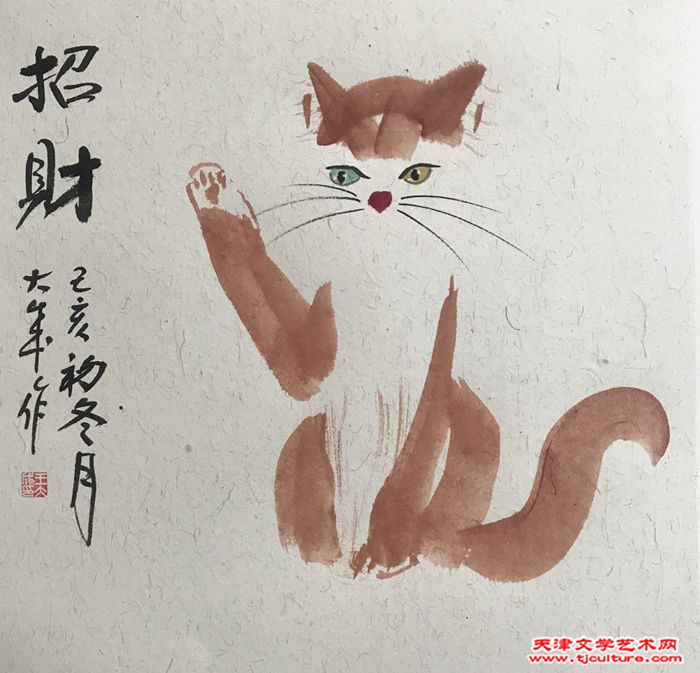 招財
己亥初冬月
大年作
天津文学艺术网
www.tjculture.com